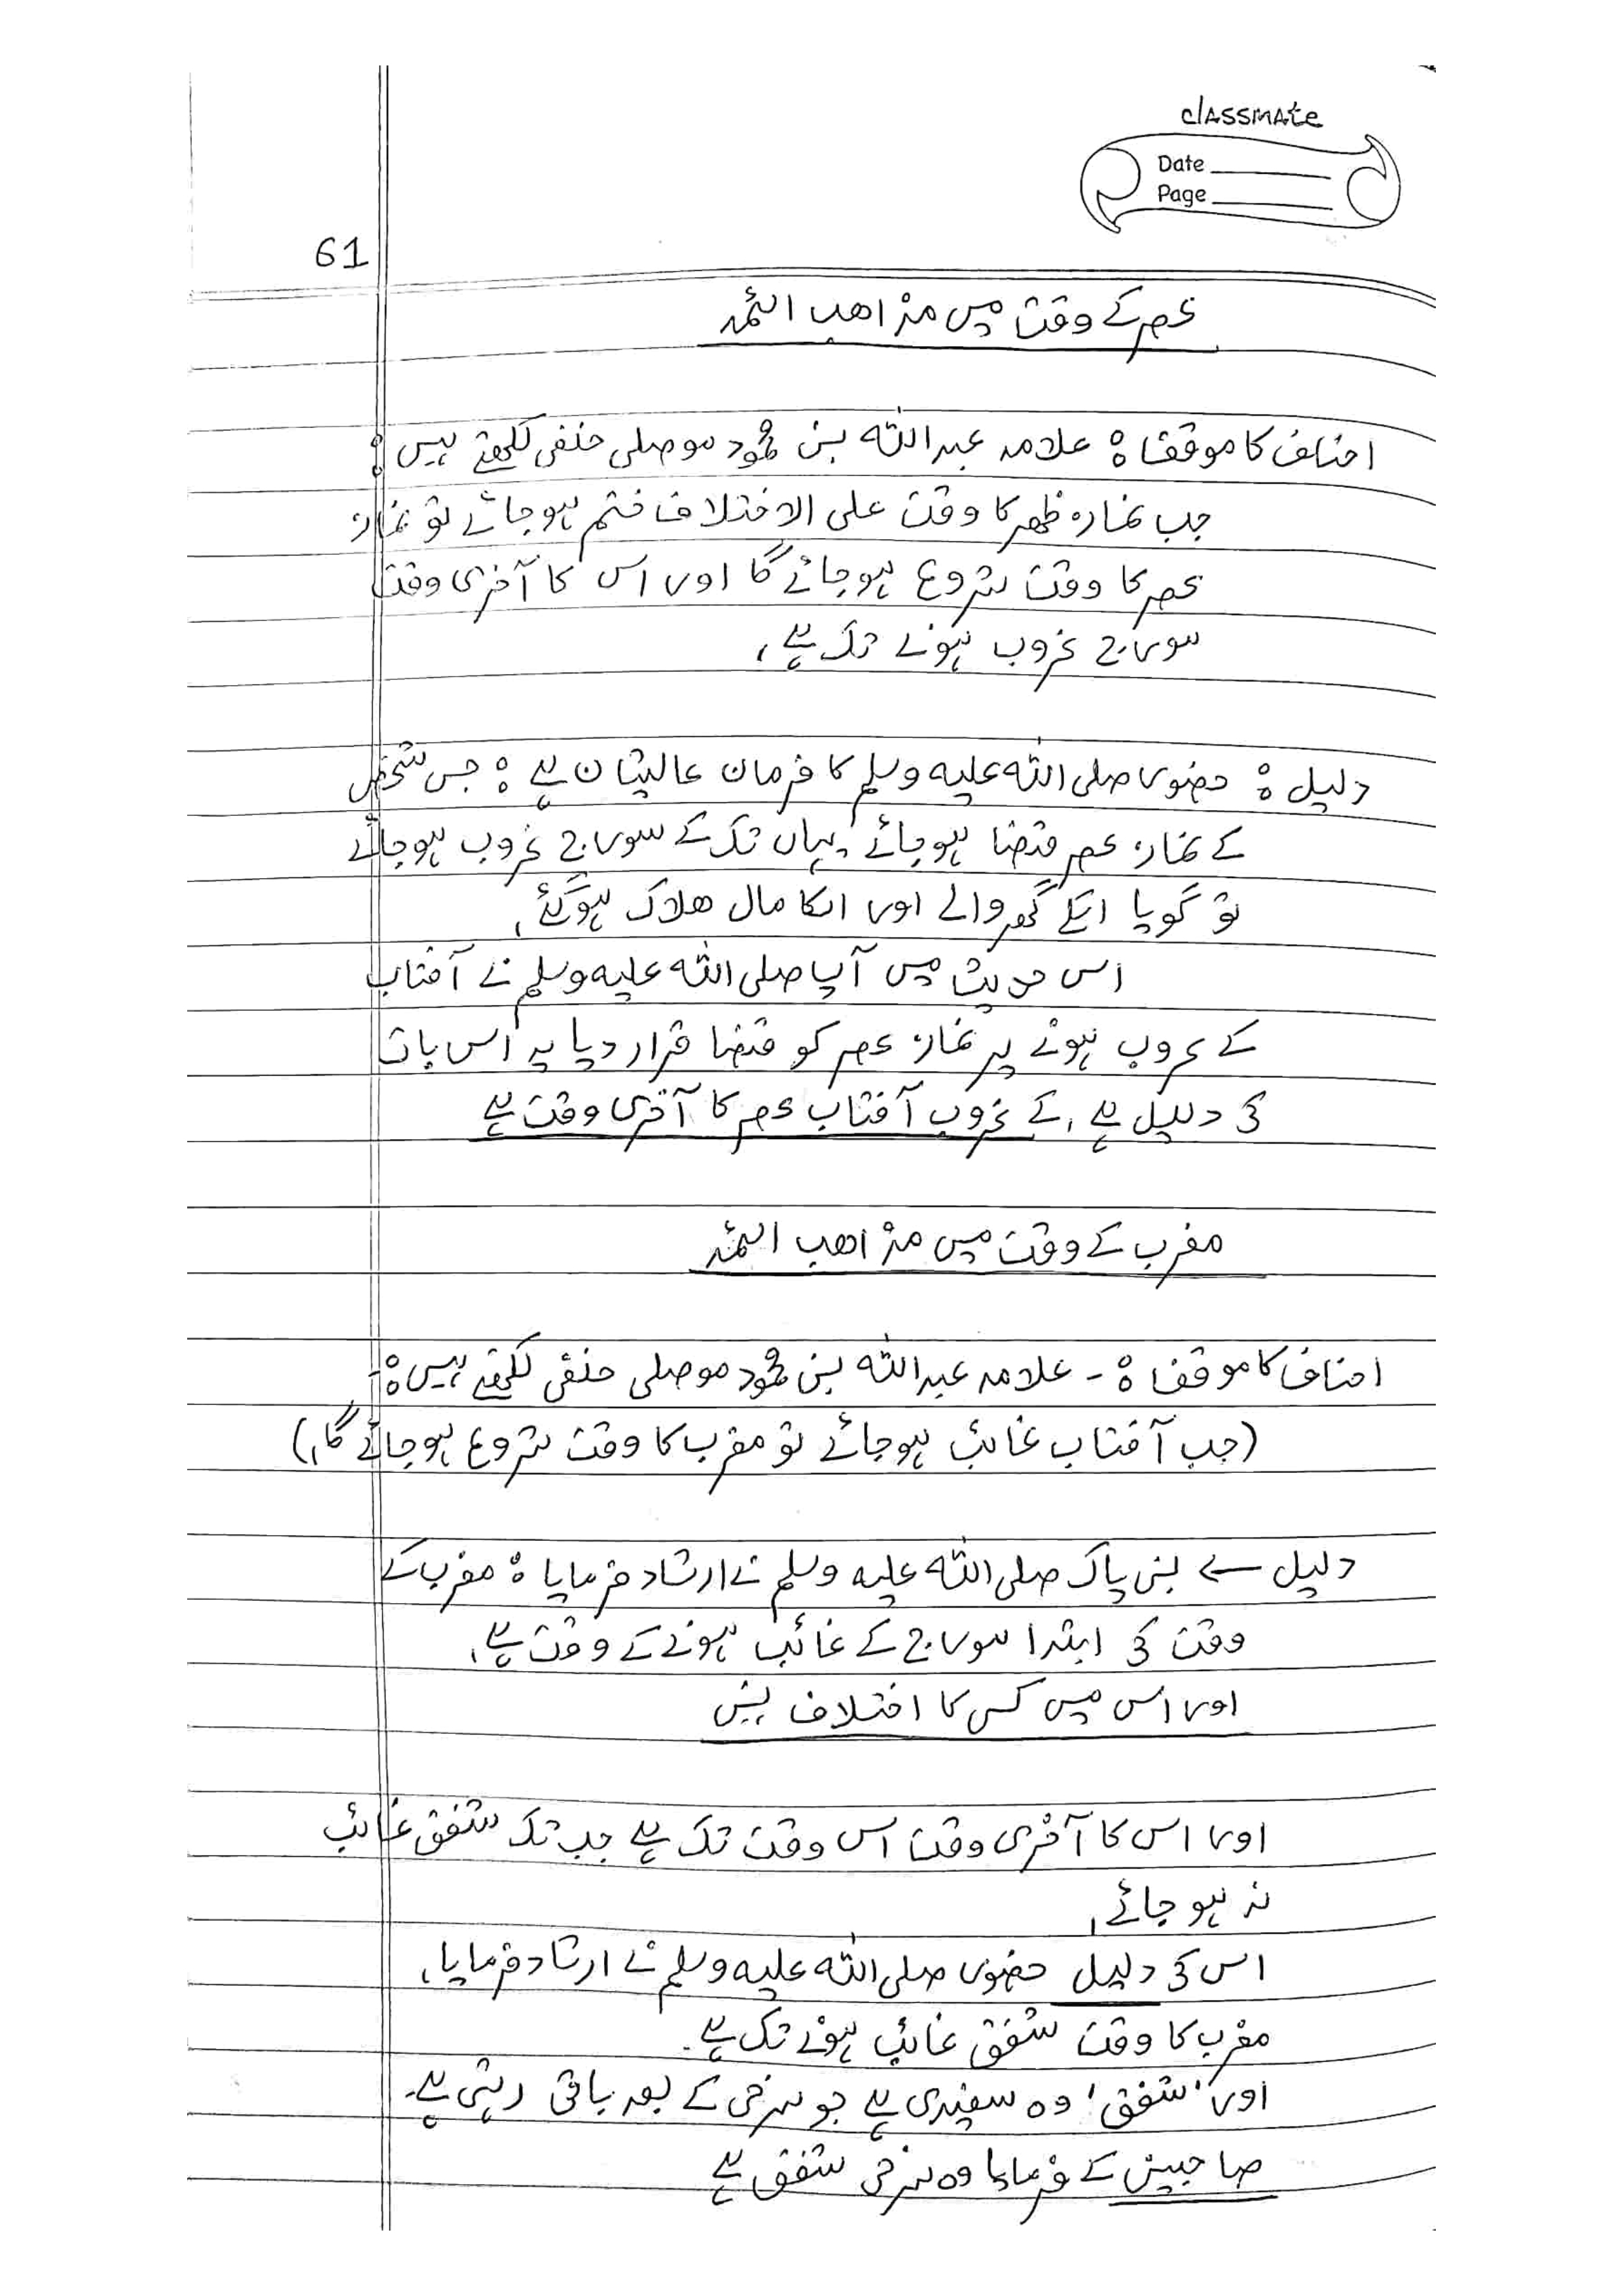 classmate
Date
Page
61
عصر کے وقت میں مذاھب ائمہ
احناف کا موقف ہ علامہ عبداللہ بن محمود موصلی حنفی لکھتے ہیں ہ
جب نماز ظہر کا وقت علی الاختلاف ختم ہوجائے تو نماز
عصر کا وقت شروع ہوجائے گا اور اس کا آخری وقت
سورج غروب ہونے تک ہے،
دلیل ہ حضور صلی اللہ علیہ وسلم کا فرمان عالیشان ہے ہ جس شخص
کے نماز عصر قضا ہوجائے یہاں تک کے سورج غروب ہوجائے
تو گویا اسکے گھر والے اور اسکا مال ھلاک ہوگئے،
اس حدیث میں آپ صلی اللہ علیہ وسلم نے آفتاب
کے غروب ہونے پر نماز عصر کو قضا قرار دیا یہ اس بات
کی دلیل ہے، کے غروب آفتاب عصر کا آخری وقت ہے
مغرب کے وقت میں مذاھب ائمہ
احناف کا موقف ہ - علامہ عبداللہ بن محمود موصلی حنفی لکھتے ہیں ہ-
(جب آفتاب غائب ہوجائے تو مغرب کا وقت شروع ہوجائے گا،)
دلیل ← نبی پاک صلی اللہ علیہ وسلم نے ارشاد فرمایا ہ مغرب کے
وقت کی ابتدا سورج کے غائب ہونے کے وقت ہے،
اور اس میں کسی کا اختلاف نہیں
اور اس کا آخری وقت اس وقت تک ہے جب تک شفق غائب
نہ ہو جائے،
اس کی دلیل حضور صلی اللہ علیہ وسلم نے ارشاد فرمایا،
مغرب کا وقت شفق غائب ہونے تک ہے۔
اور 'شفق' وہ سفیدی ہے جو سرخی کے بعد باقی رہتی ہے۔
صاحبین کے فرمایا وہ سرخی شفق ہے